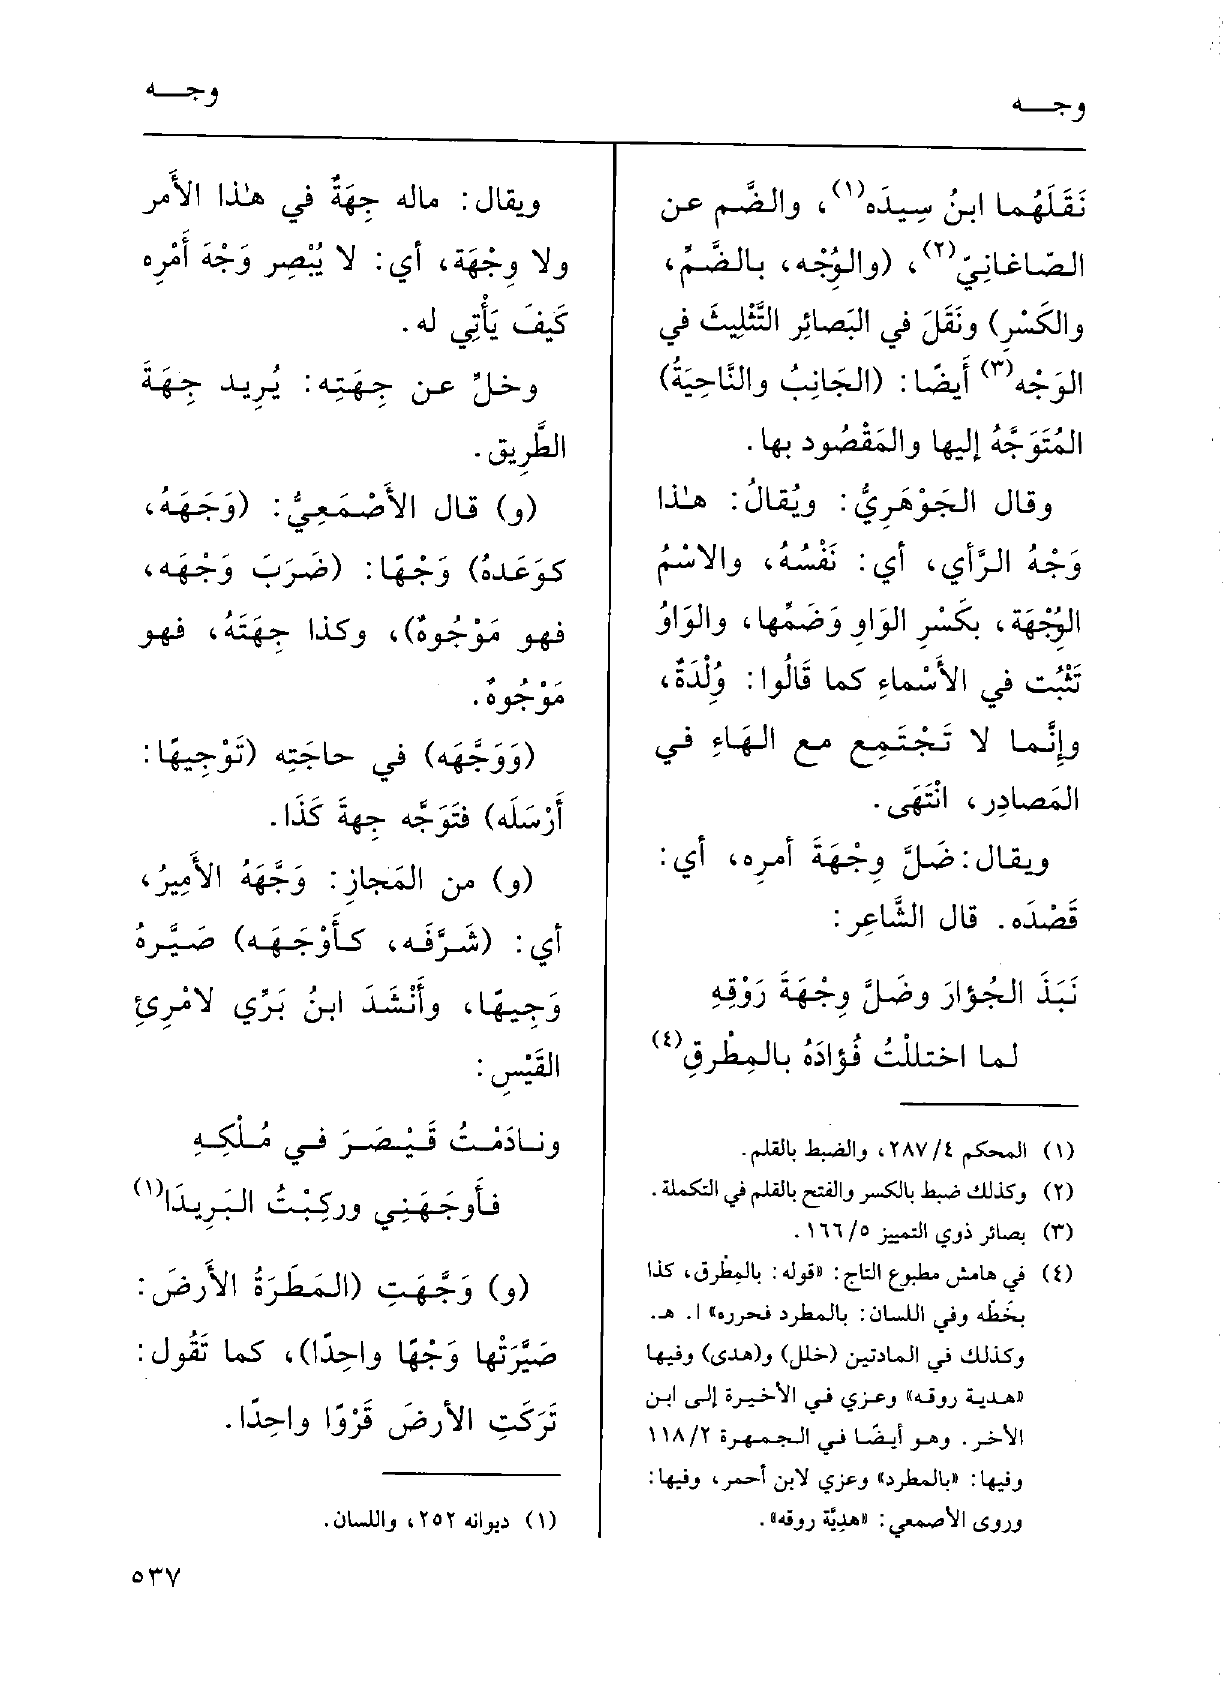 وجـــه
وجـــه
نَقَلَهُما ابنُ سِيدَه(١)، والضَّم عن
الصّاغانِيّ(٢)، (والوُِجْه، بالضَّمِّ،
والكَسْرِ) ونَقَلَ في البَصائِر التَّثْلِيثَ في
الوَجْه(٣) أَيضًا: (الجَانِبُ والنَّاحِيَةُ)
المُتَوَجَّهُ إليها والمَقْصُود بها.
وقال الجَوْهَرِيُّ: ويُقالُ: هٰذا
وَجْهُ الرَّأي، أي: نَفْسُهُ، والاسْمُ
الوُِجْهَة، بكَسْرِ الوَاوِ وَضَمِّها، والوَاوُ
تَثْبُت في الأَسْماءِ كما قَالُوا: وُِلْدَةٌ،
وإِنَّما لا تَجْتَمِع مع الهَاءِ في
المَصادِر، انْتَهَى.
ويقال: ضَلَّ وِجْهَةَ أمرِه، أي:
قَصْدَه. قال الشَّاعِر:
نَبَذَ الجُؤارَ وضَلَّ وِجْهَةَ رَوْقِهِ
لما اختللْتُ فُؤادَهُ بالمِطْرقِ(٤)
(١) المحكم ٢٨٧/٤، والضبط بالقلم.
(٢) وكذلك ضبط بالكسر والفتح بالقلم في التكملة.
(٣) بصائر ذوي التمييز ١٦٦/٥.
(٤) في هامش مطبوع التاج: «قوله: بالمِطْرق، كذا
بخَطّه وفي اللسان: بالمطرد فحرره» ا. هـ.
وكذلك في المادتين (خلل) و(هدى) وفيها
«هدية روقه» وعزي في الأخيرة إلى ابن
الأخر. وهو أيضًا في الجمهرة ١١٨/٢
وفيها: «بالمطرد» وعزي لابن أحمر، وفيها:
وروى الأصمعي: «هدِيَّة روقه».
ويقال: ماله جِهَةٌ في هٰذا الأَمر
ولا وِجْهَة، أي: لا يُبْصِر وَجْهَ أَمْرِه
كَيفَ يَأْتِي له.
وخلِّ عن جِهَتِه: يُرِيد جِهَةَ
الطَّرِيق.
(و) قال الأَصْمَعِيُّ: (وَجَهَهُ،
كوَعَدهُ) وَجْهًا: (ضَرَبَ وَجْهَه،
فهو مَوْجُوهٌ)، وكذا جِهَتَهُ، فهو
مَوْجُوهٌ.
(وَوَجَّهَه) في حاجَتِه (تَوْجِيهًا:
أَرْسَلَه) فتَوَجَّه جِهةَ كَذَا.
(و) من المَجازِ: وَجَّهَهُ الأَمِيرُ،
أي: (شَرَّفَه، كأَوْجَهَه) صَيَّرهُ
وَجِيهًا، وأَنْشَدَ ابنُ بَرِّي لامْرِئِ
القَيْسِ:
ونادَمْتُ قَيْصَرَ في مُلْكِهِ
فأَوجَهَنِي وركِبْتُ البَرِيدَا(١)
(و) وَجَّهَتِ (المَطَرَةُ الأَرضَ:
صَيَّرَتْها وَجْهًا واحِدًا)، كما تَقُول:
تَرَكَتِ الأرضَ قَرْوًا واحِدًا.
(١) ديوانه ٢٥٢، واللسان.
٥٣٧